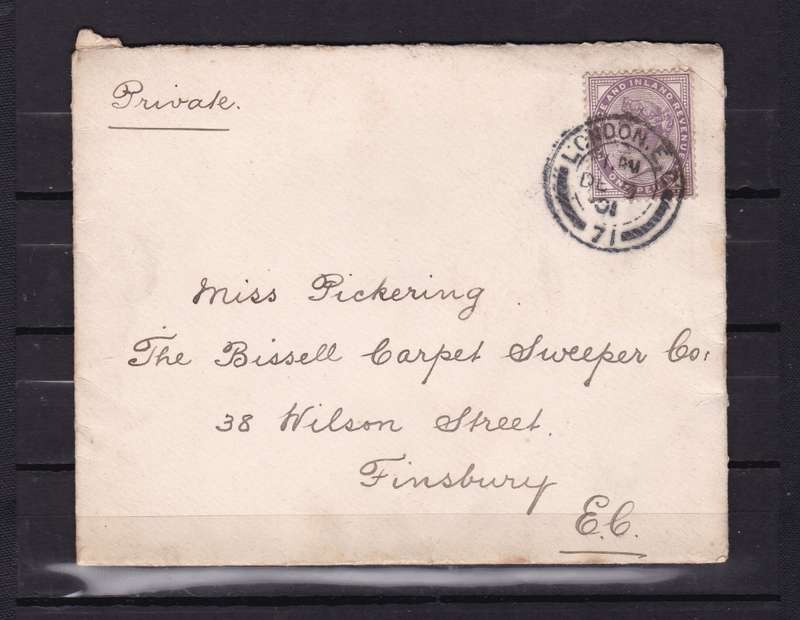 Private.
E AND INLAND REVENUE
ONE PENNY
LONDON. E.C
PM
DE
01
71
Miss Pickering
The Bissell Carpet Sweeper Co:
38 Wilson Street.
Finsbury
E.C.